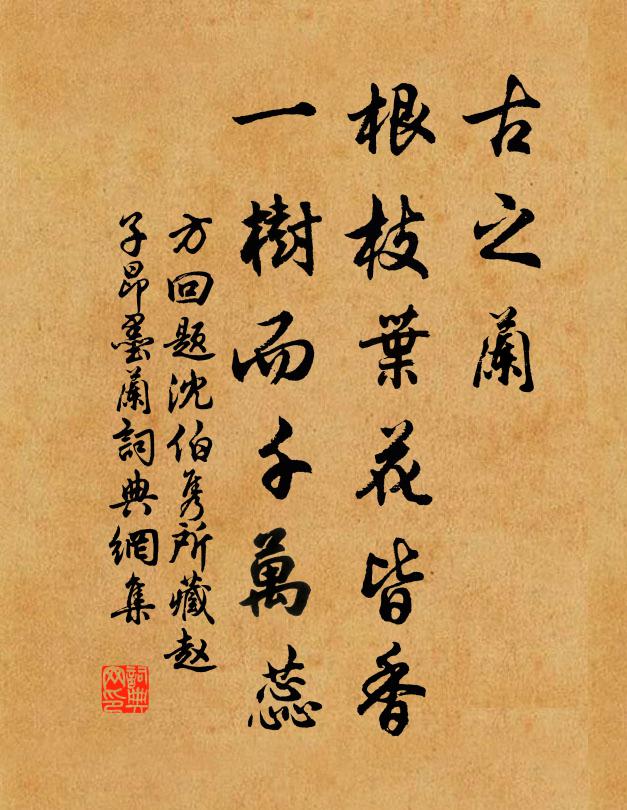 古之蘭
根枝葉花皆香
一樹而千萬蕊
方回題沈伯隽所藏赵
子昂墨蘭詞典網集
詞典
网印